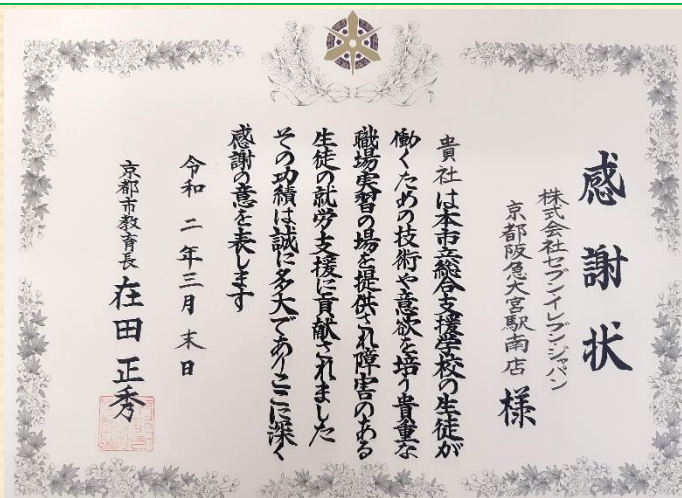 感謝状
株式会社セブンイレブンジャパン
京都阪急大宮駅南店 様
貴社は本市立総合支援学校の生徒が
働くための技術や意欲を培う貴重な
職場実習の場を提供され障害のある
生徒の就労支援に貢献されました
その功績は誠に多大でありここに深く
感謝の意を表します
令和二年三月末日
京都市教育長 在田正秀